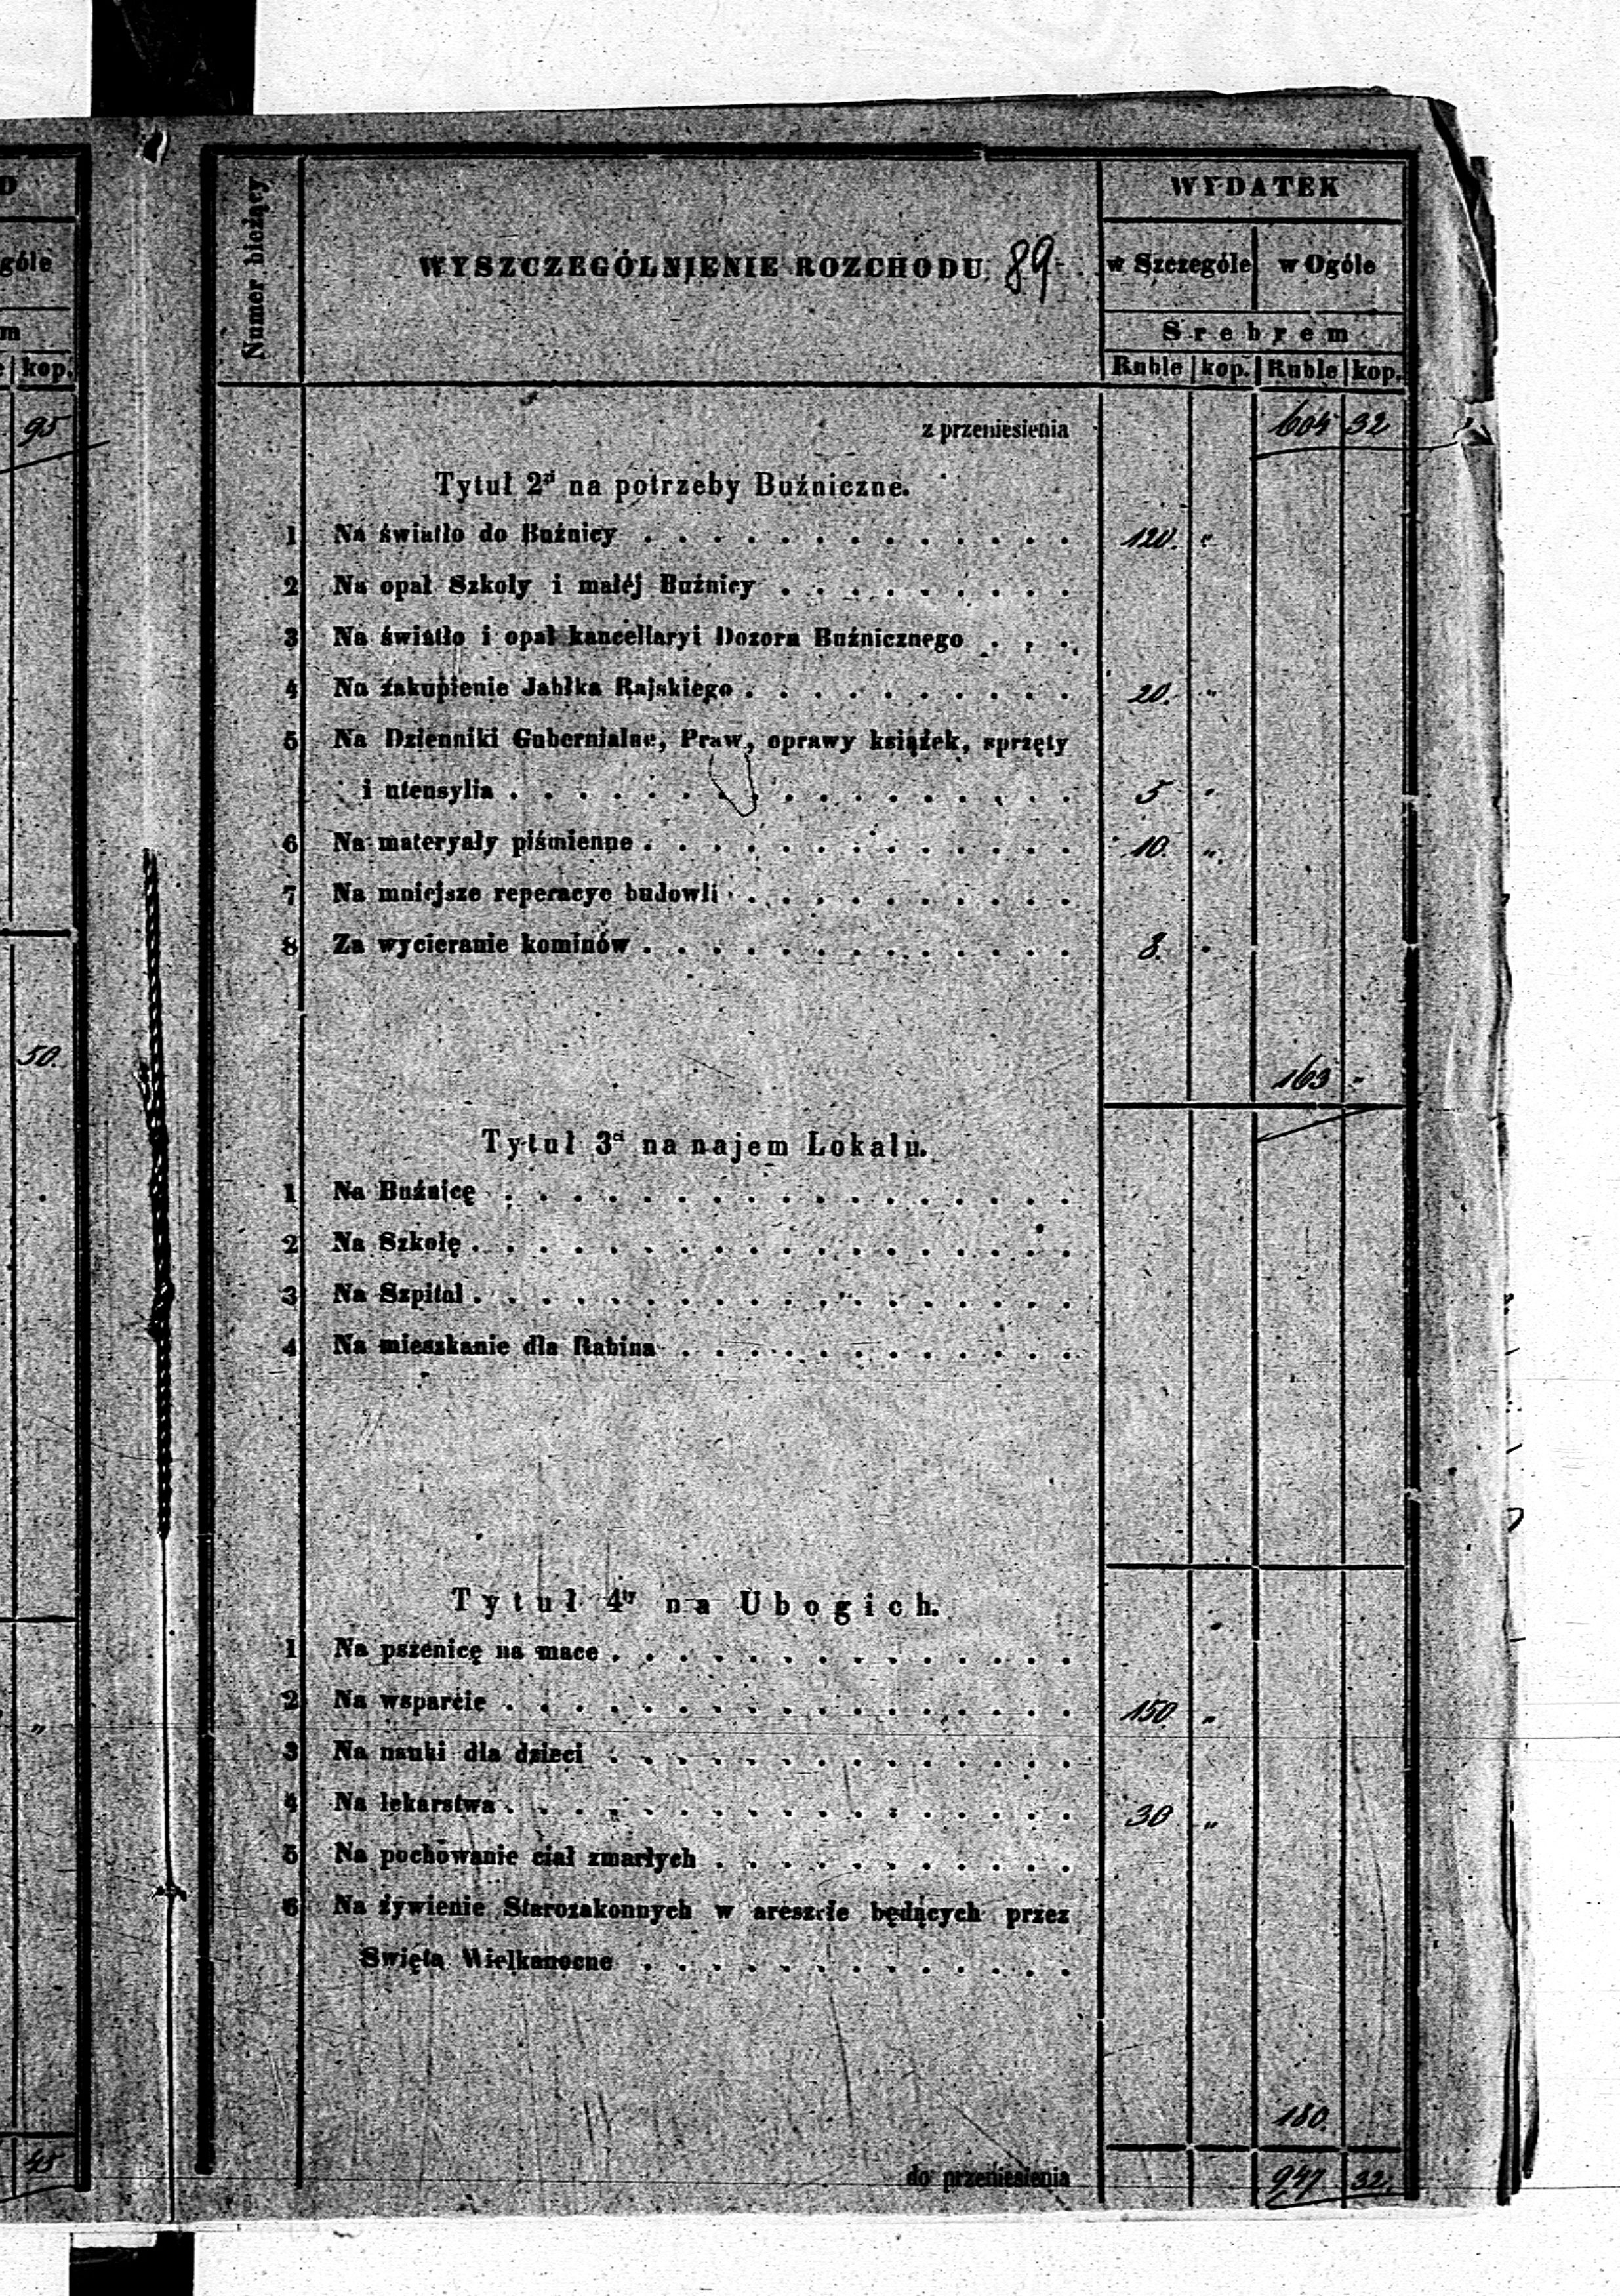 D
góle
m
e kop.
95
50.
"
45
Numer bieżący
WYSZCZEGÓLNIENIE ROZCHODU. 89
WYDATEK
w Szczególe w Ogóle
Srebrem
Ruble kop. Ruble kop.
z przeniesienia 604 32
Tytuł 2gi na potrzeby Buźniczne.
1 Na światło do Buźnicy . . . . . . . . . . . . . 120. "
2 Na opał Szkoły i małéj Buźnicy . . . . . . . . .
3 Na światło i opał kancellaryi Dozora Buźnicznego . . .
4 Na zakupienie Jabłka Rajskiego . . . . . . . . . . 20. "
5 Na Dzienniki Gubernialne, Praw, oprawy książek, sprzęty
i utensylia . . . . . . . . . . . . . . . . . 5 "
6 Na materyały piśmienne . . . . . . . . . . . . . 10. "
7 Na mniejsze reperacye budowli . . . . . . . . . .
8 Za wycieranie kominów . . . . . . . . . . . . . 8. "
163 "
Tytuł 3ci na najem Lokalu.
1 Na Buźnicę . . . . . . . . . . . . . . . . .
2 Na Szkołę . . . . . . . . . . . . . . . . . .
3 Na Szpital . . . . . . . . . . . . . . . . . .
4 Na mieszkanie dla Rabina . . . . . . . . . . . .
Tytuł 4ty na Ubogich.
1 Na pszenicę na mace . . . . . . . . . . . . . .
2 Na wsparcie . . . . . . . . . . . . . . . . . 150. "
3 Na nauki dla dzieci . . . . . . . . . . . . . .
4 Na lekarstwa . . . . . . . . . . . . . . . . . 30 "
5 Na pochowanie ciał zmarłych . . . . . . . . . . .
6 Na żywienie Starozakonnych w areszcie będących przez
Swięta Wielkanocne . . . . . . . . . . . . .
180.
do przeniesienia 947 32.